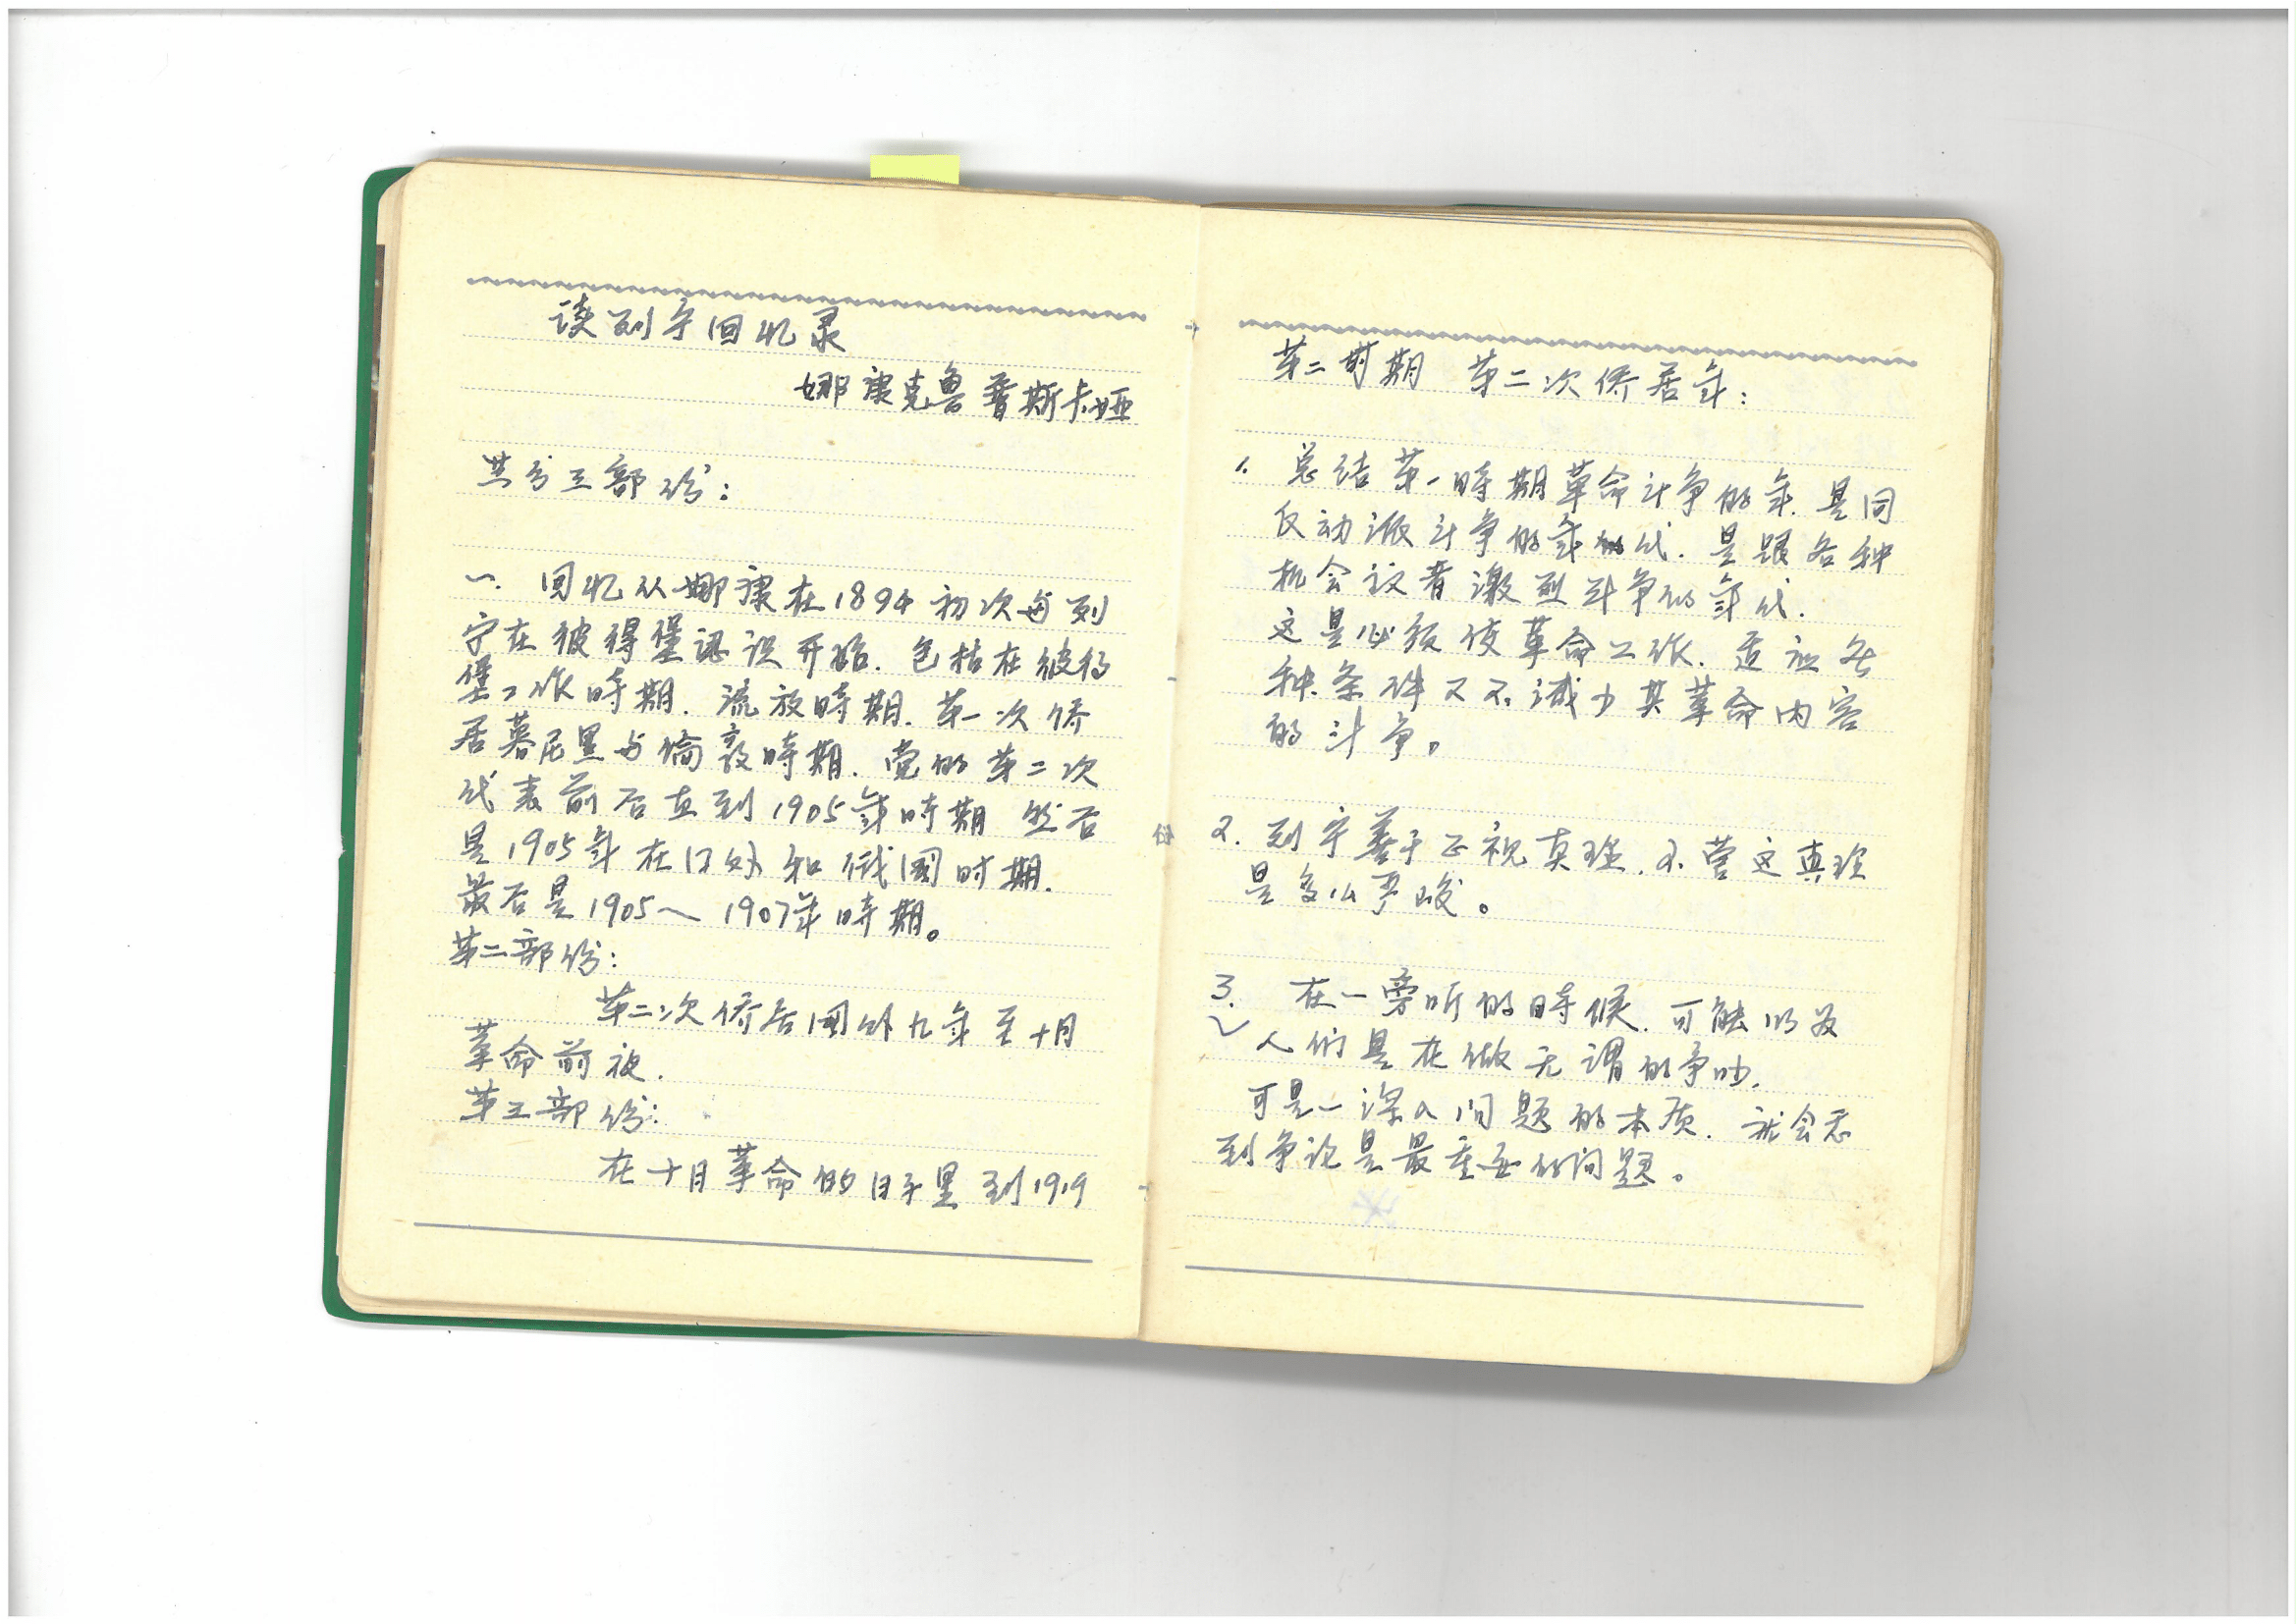 读列宁回忆录
娜康克鲁普斯卡娅
共分三部份：
一. 回忆从娜康在1894初次与列
宁在彼得堡認识开始. 包括在彼得
堡工作時期. 流放時期. 第一次侨
居慕尼黑与倫敦時期. 党的第二次
代表前后直到1905年時期 然后
是1905年在国外和俄國时期.
最后是1905～1907年時期。
第二部份：
第二次侨居國外九年至十月
革命前夜.
第三部份：
在十月革命的日子里到1919
第二时期 第二次侨居年：
1. 总结第一時期革命斗争的年. 是同
反动派斗争的年代. 是跟各种
机会议者激烈斗争的年代.
这是必须使革命工作. 适应各
种条件又不减少其革命内容
的斗争。
2. 列宁善于正视真理. 不管这真理
是多么严峻。
3. 在一旁听的時候. 可能以为
人们是在做无谓的争吵.
可是一深入问题的本质. 就会看
到争论是最重要的问题。